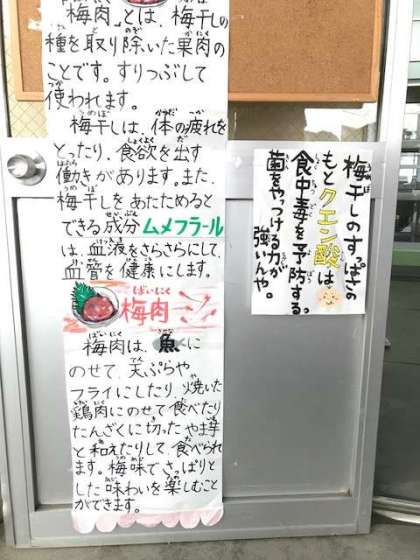 「梅肉」とは、梅干しの
種を取り除いた果肉の
ことです。すりつぶして
使われます。
梅干しは、体の疲れを
とったり、食欲を出す
働きがあります。また、
梅干しをあたためると
できる成分ムメフラール
は、血液をさらさらにして、
血管を健康にします。
梅肉
梅肉は、魚に
のせて、天ぷらや
フライにしたり、焼いた
鶏肉にのせて食べたり
たんざくに切ったやま芋
と和えたりして、食べられ
ます。梅味でさっぱりと
した味わいを楽しむこと
ができます。
梅干しのすっぱさの
もとクエン酸は
食中毒を予防する。
菌をやっつける力が
強いんや。